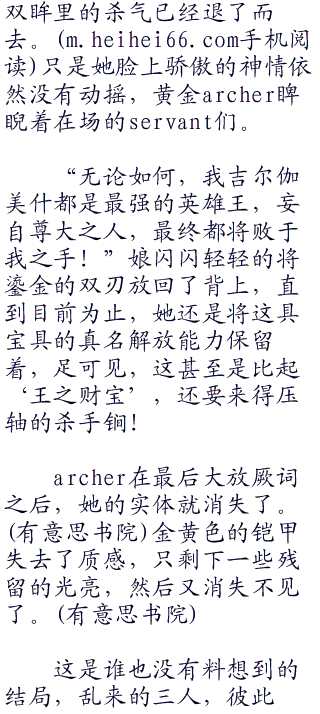 双眸里的杀气已经退了而
去。(m.heihei66.com手机阅
读)只是她脸上骄傲的神情依
然没有动摇，黄金archer睥
睨着在场的servant们。
“无论如何，我吉尔伽
美什都是最强的英雄王，妄
自尊大之人，最终都将败于
我之手！”娘闪闪轻轻的将
鎏金的双刃放回了背上，直
到目前为止，她还是将这具
宝具的真名解放能力保留
着，足可见，这甚至是比起
‘王之财宝’，还要来得压
轴的杀手锏！
archer在最后大放厥词
之后，她的实体就消失了。
(有意思书院)金黄色的铠甲
失去了质感，只剩下一些残
留的光亮，然后又消失不见
了。(有意思书院)
这是谁也没有料想到的
结局，乱来的三人，彼此